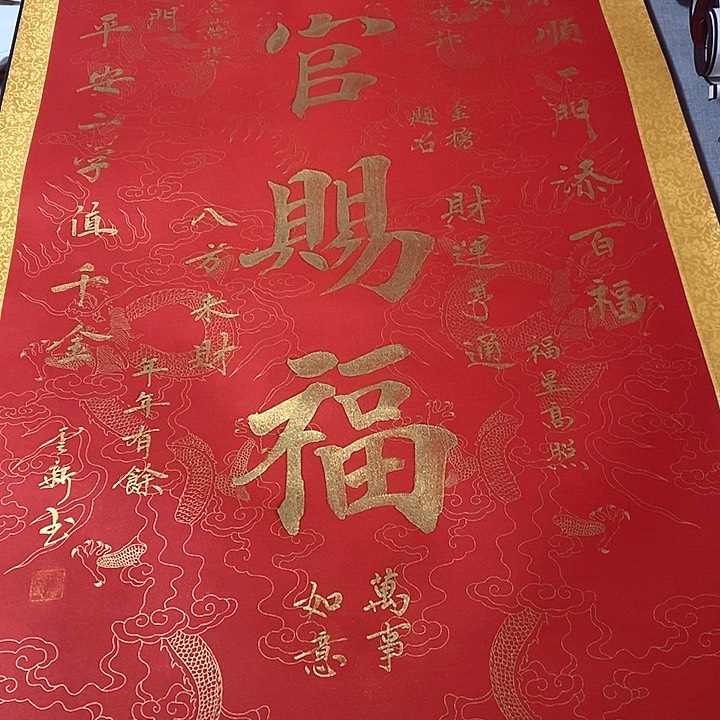 順一門添百福
福星高照
財運亨通
金榜
題名
官賜福
萬事
如意
八方来財
年年有餘
門
平安二字值千金